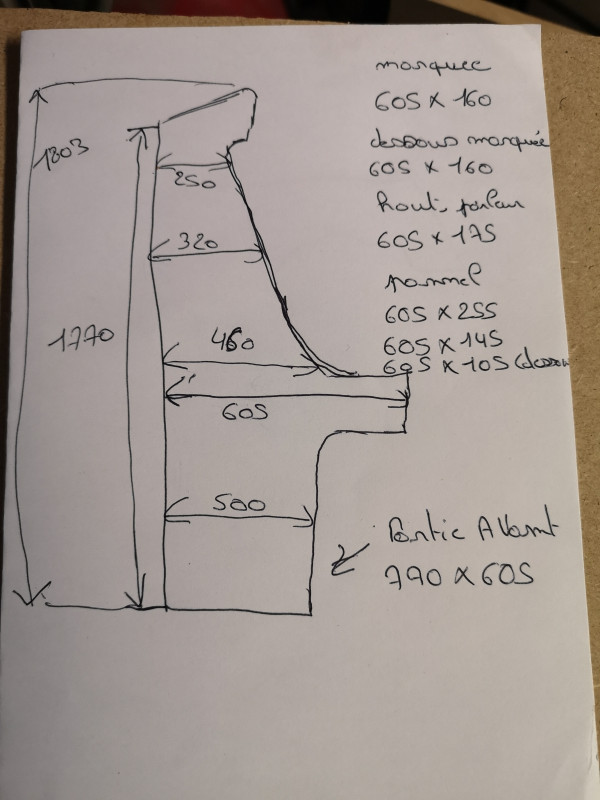 marquee
605 x 160
dessous marquée
605 x 160
haut parleur
605 x 175
pannel
605 x 255
605 x 145
605 x 105 (dessou
1803
250
320
1770
460
605
500
Partie Avant
770 x 605